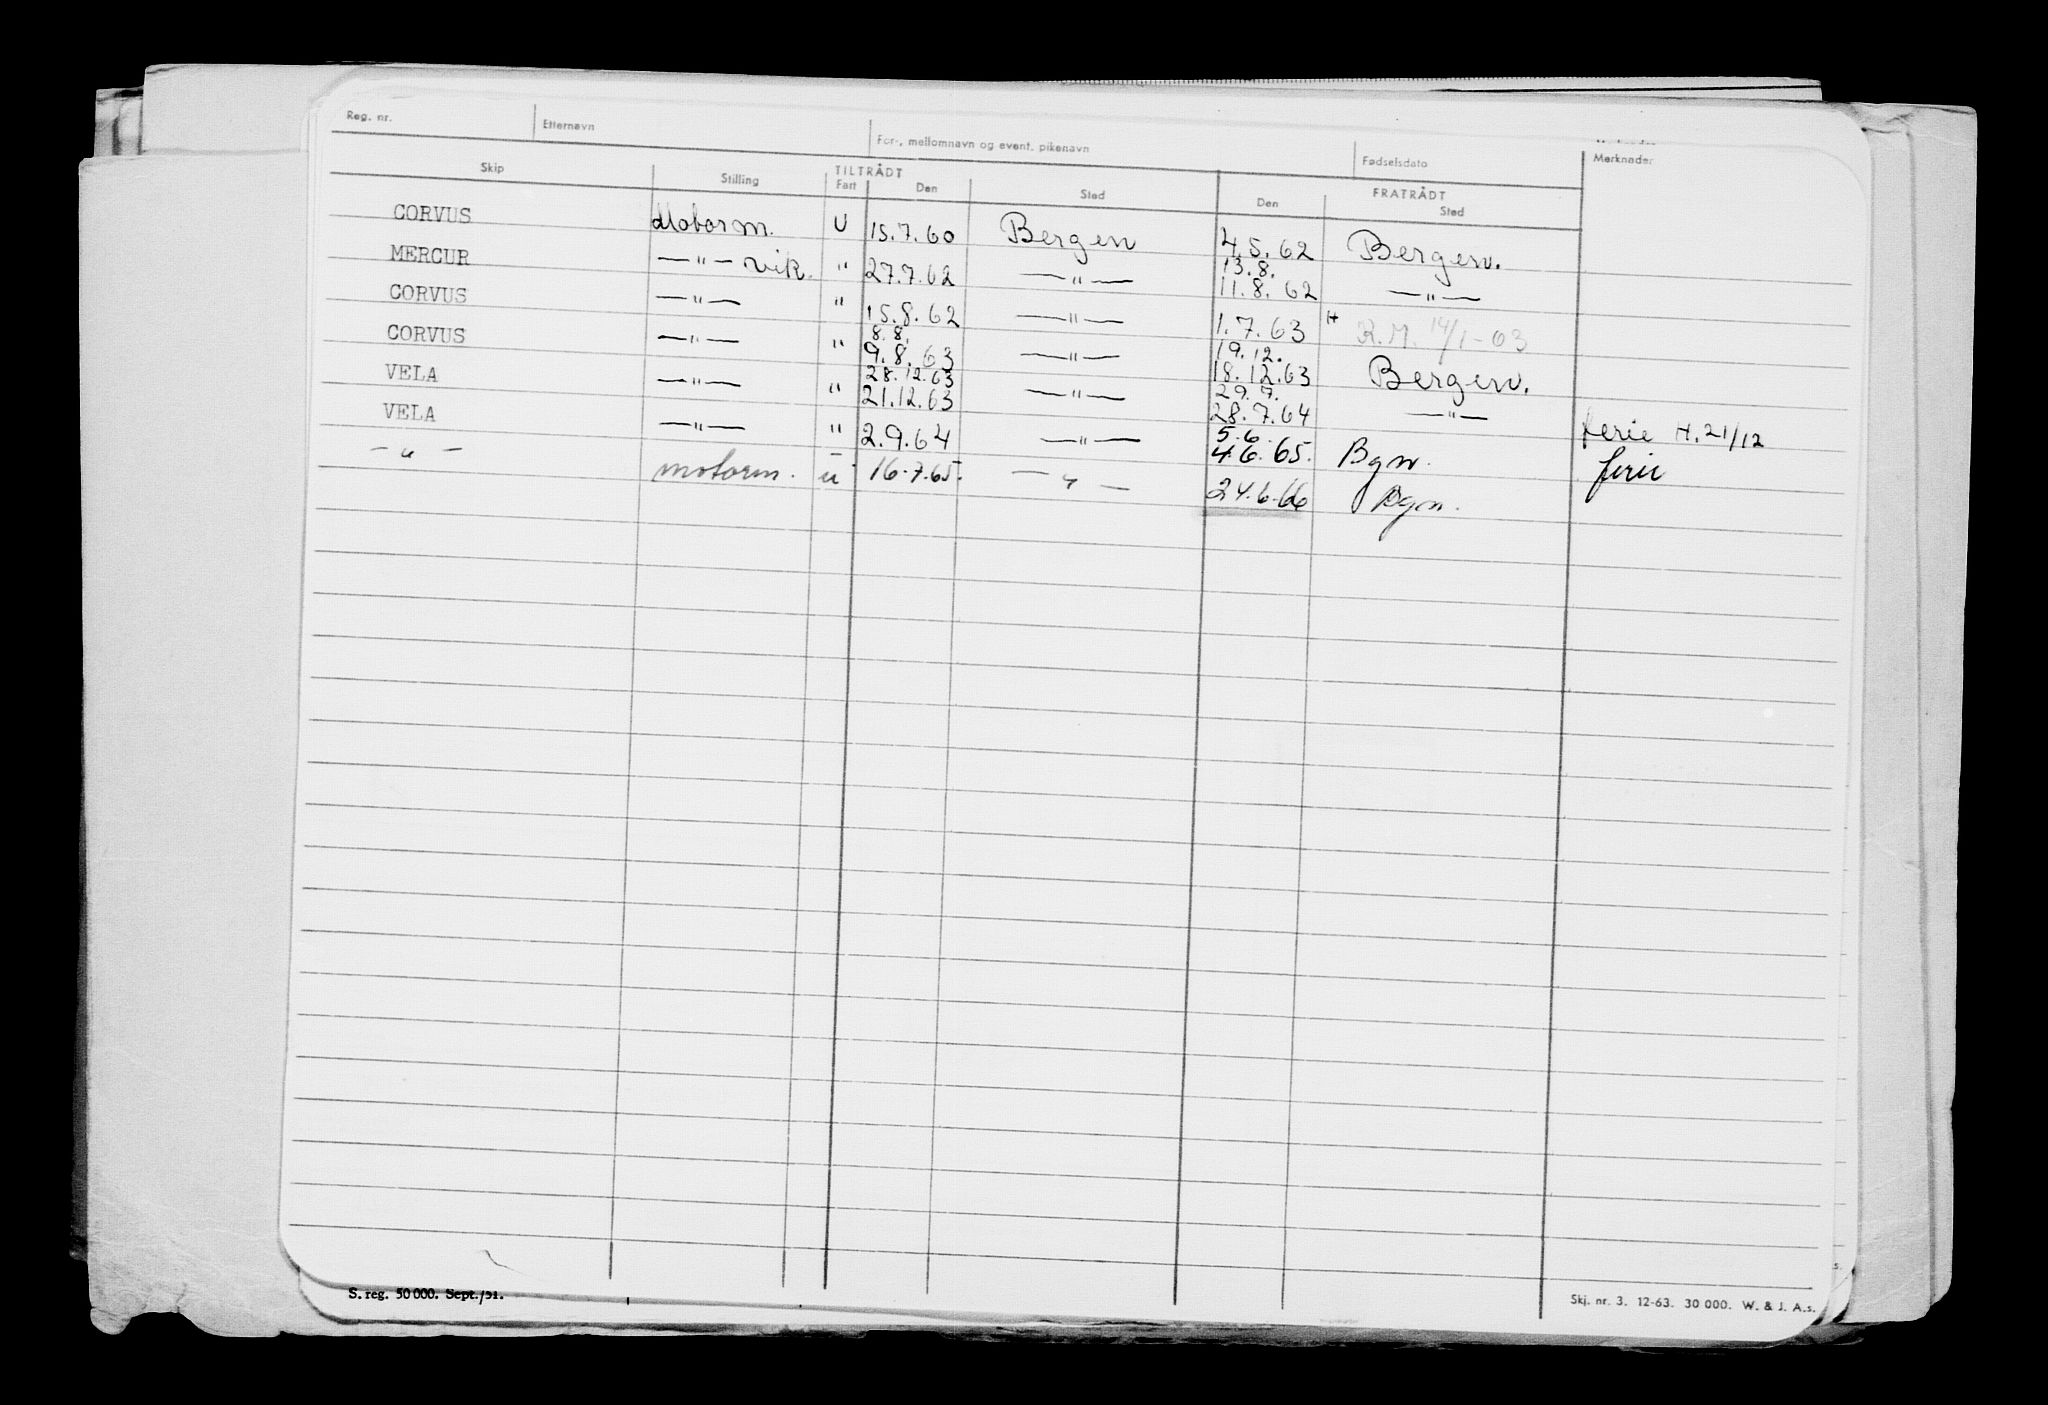 Reg. nr. Etternavn For-, mellomnavn og event. pikenavn Fødselsdato Merknader
Skip Stilling TILTRÅDT Fart Den Sted FRATRÅDT Den Sted
CORVUS Motorm. U 15.7.60 Bergen 4.5.62 Bergen.
13.8.
MERCUR —"— vik. " 27.7.62 —"— 11.8.62 —"—
CORVUS —"— " 15.8.62 —"— 1.7.63 H R.M. 14/1-63
8.8. 19.12.
CORVUS —"— " 9.8.63 —"— 18.12.63 Bergen.
28.12.63 29.7.
VELA —"— " 21.12.63 —"— 28.7.64 —"— ferie H. 21/12
5.6.
VELA —"— " 2.9.64 —"— 4.6.65. Bgn. ferie
—"— motorm. u 16.7.65. —"— 24.6.66 Bgn.
S. reg. 50 000. Sept./51.
Skj. nr. 3. 12-63. 30 000. W. & J. A.s.